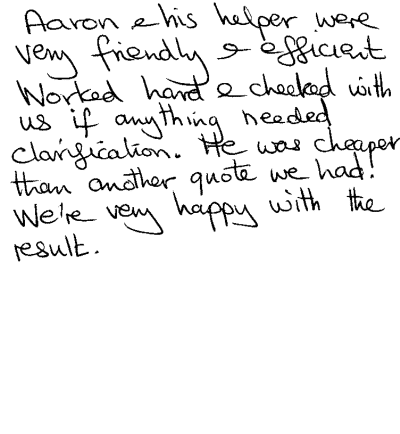 Aaron & his helper were
very friendly & efficient
Worked hard & checked with
us if anything needed
clarification. He was cheaper
than another quote we had!
We're very happy with the
result.